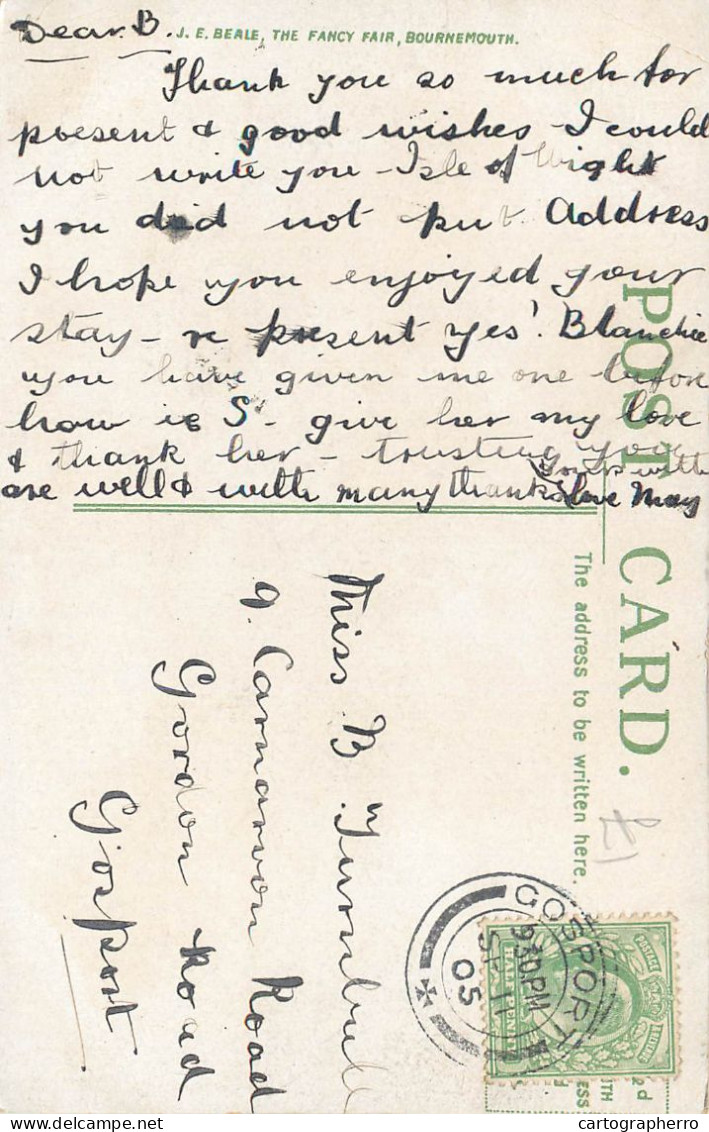 Dear B. J. E. BEALE, THE FANCY FAIR, BOURNEMOUTH.
Thank you so much for
present & good wishes I could
not write you - Isle of Wight
you did not put Address
I hope you enjoyed your
stay - re present yes! Blanchie
you have given me one before
how is S - give her my love
& thank her - trusting you
are well & with many thanks
Yours with
love May
POST CARD.
The address to be written here.
£1
Miss B Turnbull
9. Carnarvon Road
Gordon Road
Gosport
GOSPORT
9 30 PM
SP 11
05
POSTAGE
REVENUE
HALFPENNY
cartographerro